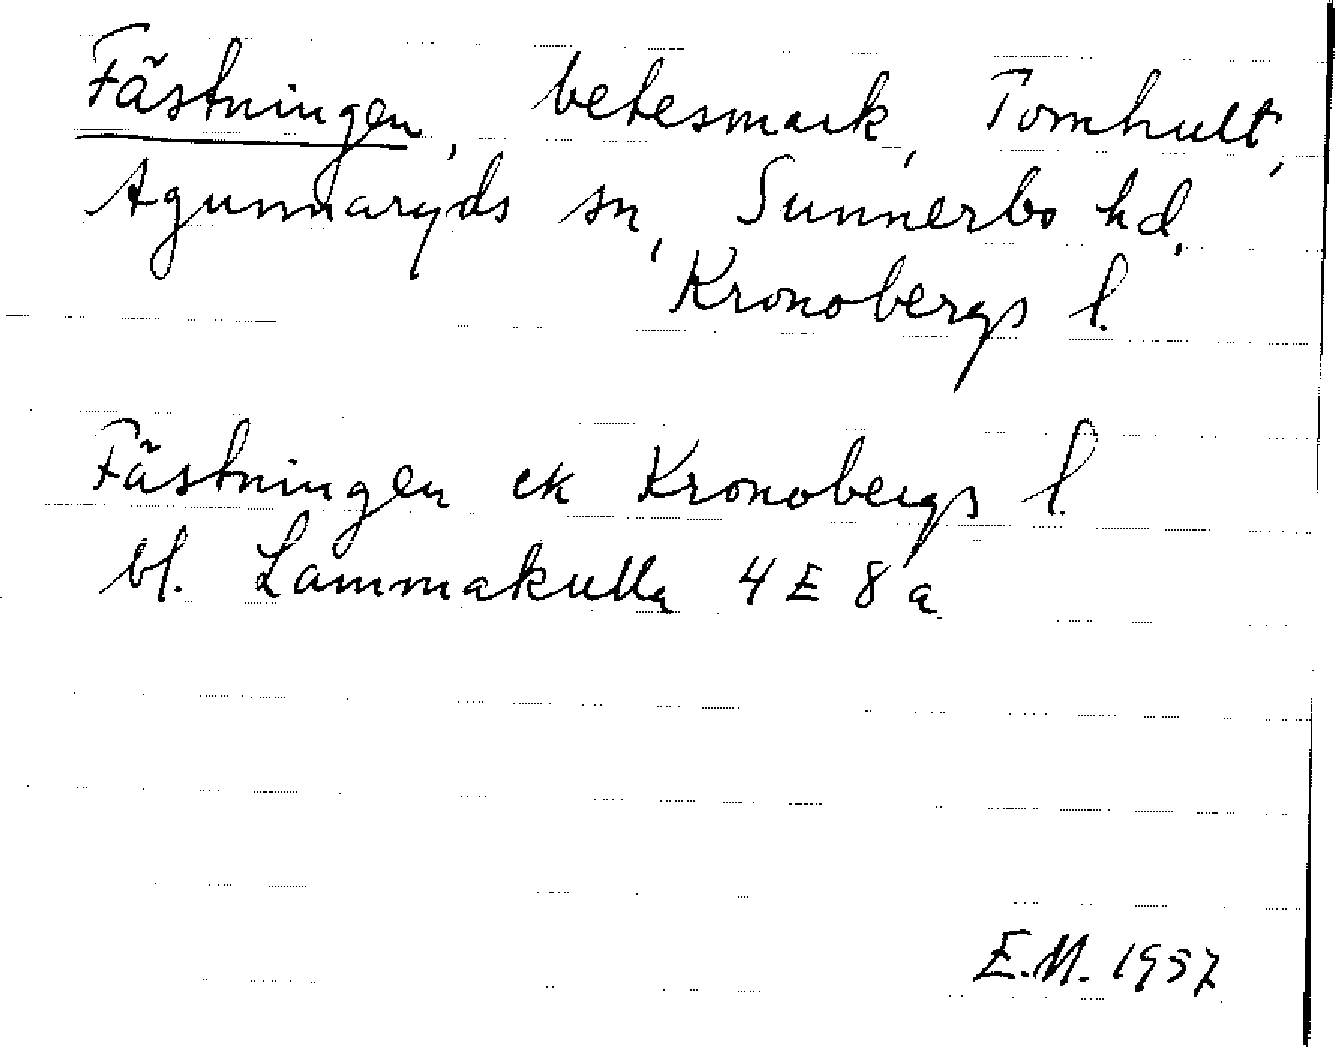 Fästningen, betesmark, Tomhult,
Agunnaryds sn, Sunnerbo hd,
Kronobergs l.
Fästningen ek Kronobergs l.
bl. Lammakulla 4 E 8 a
E.M. 1957